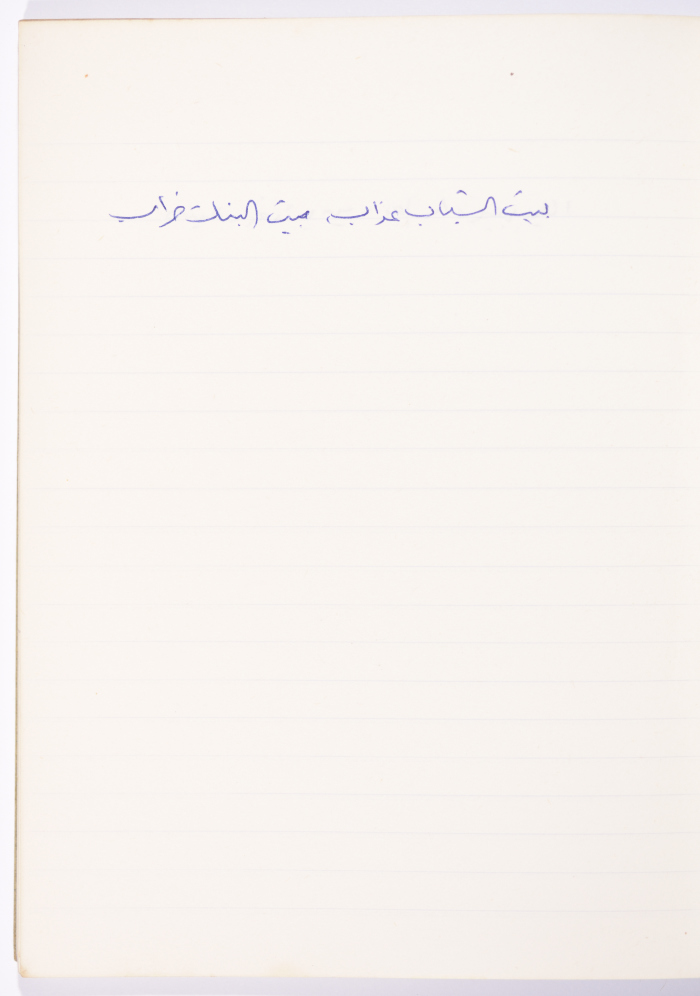 بيت الشباب عذاب، بيت البنات خراب